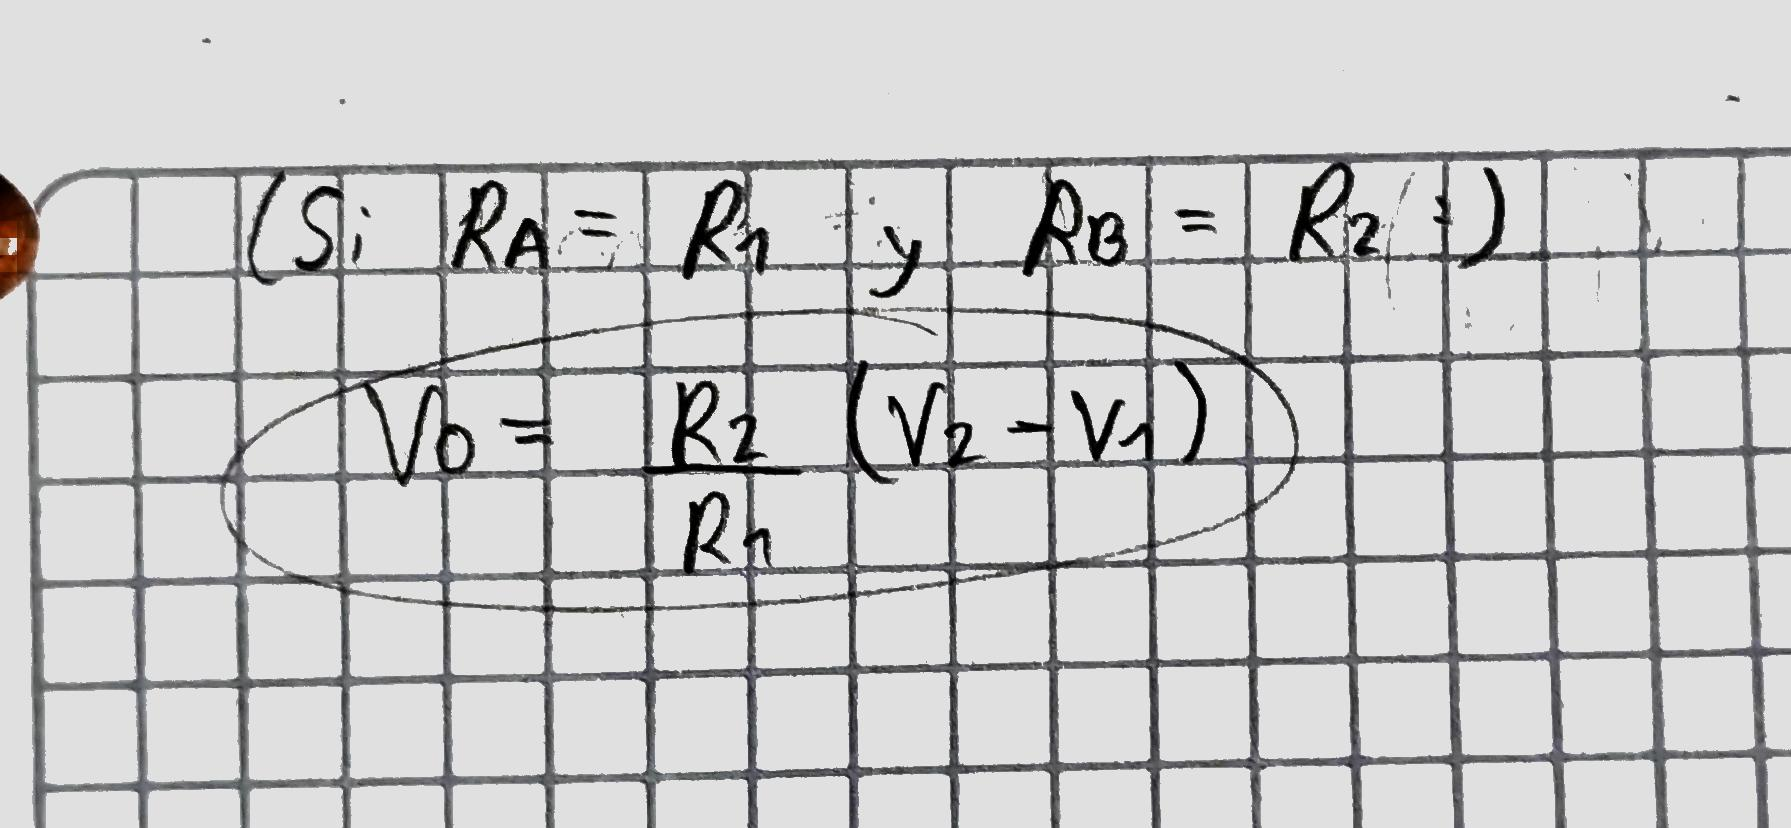 (Si RA = R1 y RB = R2 :)
Vo = R2/R1 (V2 - V1)